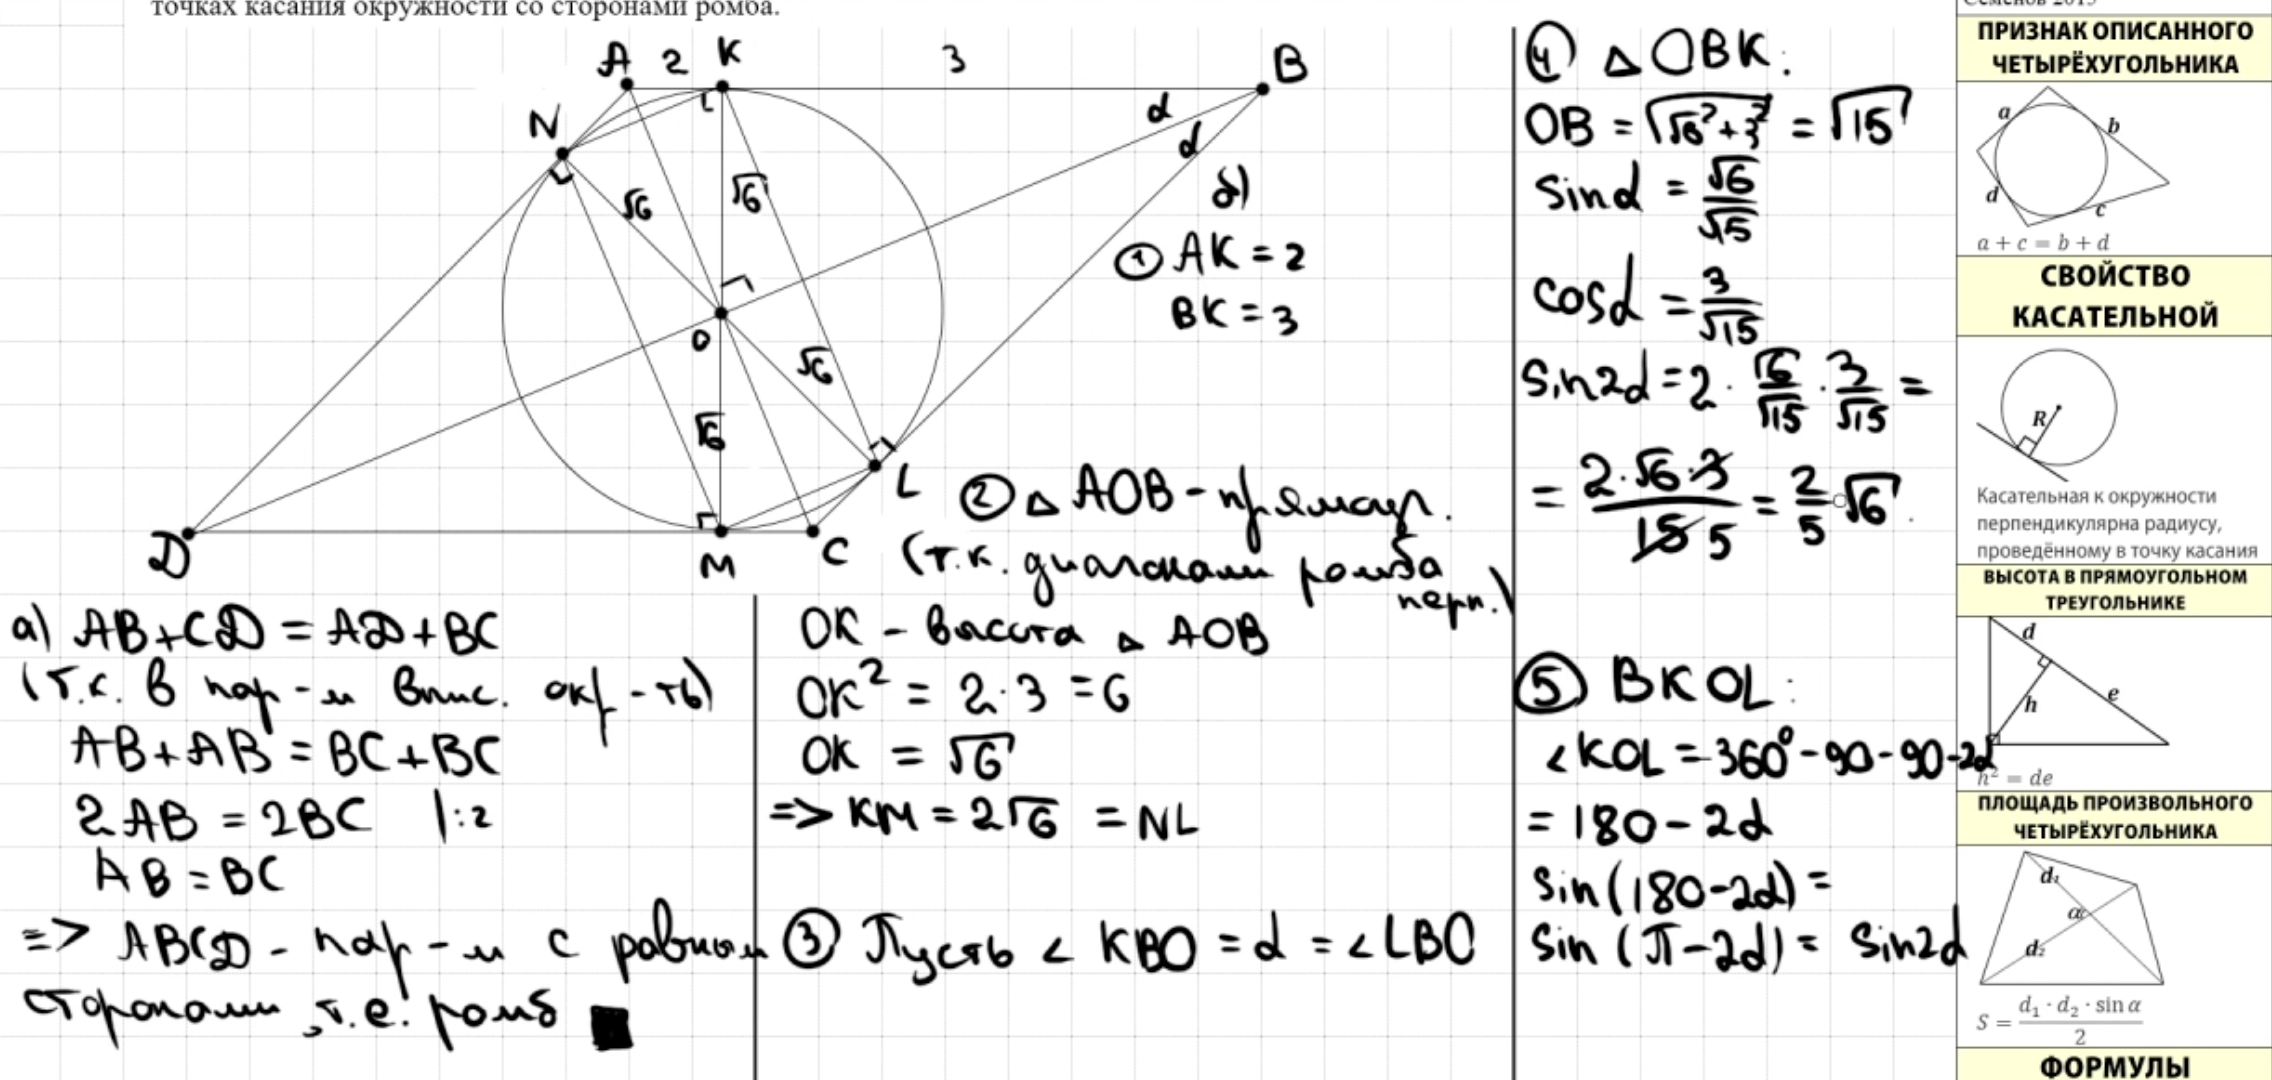 точках касания окружности со сторонами ромба.
A 2 K 3 B
N
α
α
√6 √6
O
√6
√6
L
D M C
а) AB+CD = AD+BC
(т.к. в пар-м впис. окр-ть)
AB+AB = BC+BC
2AB = 2BC |:2
AB = BC
=> ABCD - пар-м с равными
сторонами, т.е. ромб
б)
① AK = 2
BK = 3
② △ AOB - прямоуг.
(т.к. диагонали ромба
перп.)
OK - высота △ AOB
OK² = 2·3 = 6
OK = √6
=> KM = 2√6 = NL
③ Пусть ∠ KBO = α = ∠LBO
④ △ OBK:
OB = √(√6² + 3²) = √15
sinα = √6/√15
cosα = 3/√15
sin2α = 2 · √6/√15 · 3/√15 =
= 2·√6·3/15 5 = 2/5 √6
⑤ BKOL:
∠KOL = 360° - 90 - 90 - 2α
= 180 - 2α
sin(180-2α) =
sin(π-2α) = sin2α
ПРИЗНАК ОПИСАННОГО
ЧЕТЫРЁХУГОЛЬНИКА
a b
d c
a + c = b + d
СВОЙСТВО
КАСАТЕЛЬНОЙ
R
Касательная к окружности
перпендикулярна радиусу,
проведённому в точку касания
ВЫСОТА В ПРЯМОУГОЛЬНОМ
ТРЕУГОЛЬНИКЕ
d
h e
h² = de
ПЛОЩАДЬ ПРОИЗВОЛЬНОГО
ЧЕТЫРЁХУГОЛЬНИКА
d₁
α
d₂
S = d₁ · d₂ · sin α / 2
ФОРМУЛЫ